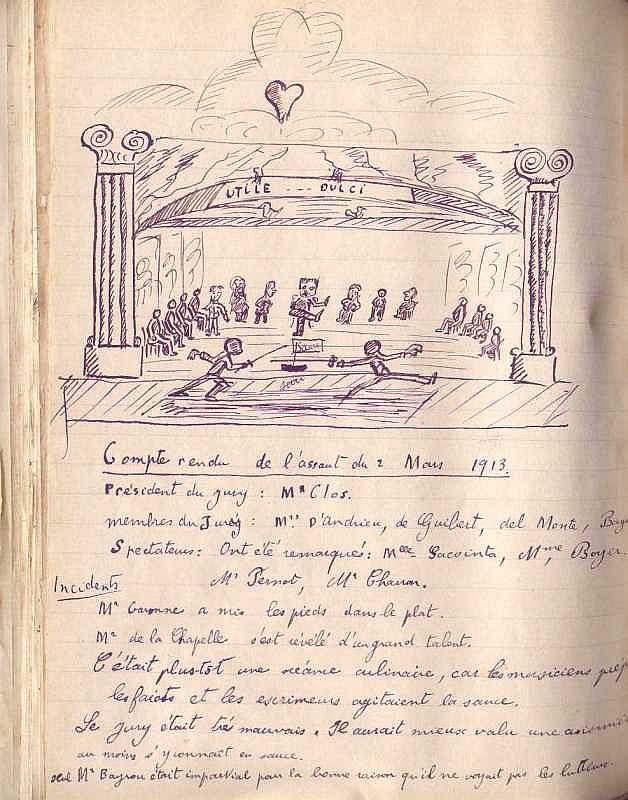 UTILE --- DULCI
Compte rendu de l'assaut du 2 Mars 1913.
Président du jury : Mr Clos.
membres du Jury : Mrs D'Andrieu, de Guibert, del Monte,
Spectateurs : Ont été remarqués : Melle Sacointa, Mme Boyer.
Mr Pernot, Mr Chavan.
Incidents
Mr Garonne a mis les pieds dans le plat.
Mr de la Chapelle s'est révélé d'un grand talent.
C'était plus-tôt une séance culinaire, car les musiciens
les faisots et les escrimeurs agitaient la sauce.
Le jury était très mauvais. Il aurait mieux valu une
au moins s'y connait en sauce.
seul Mr Bayrou était impartial pour la bonne raison qu'il ne voyait pas les lutteurs.